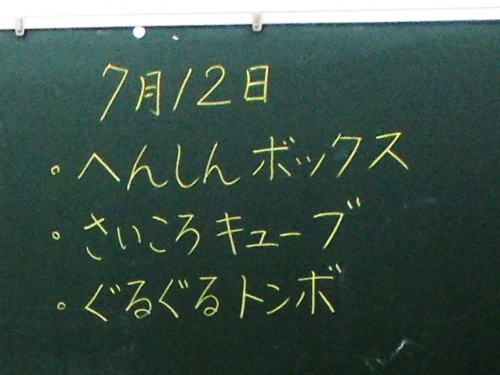 7月12日
・へんしんボックス
・さいころキューブ
・ぐるぐるトンボ